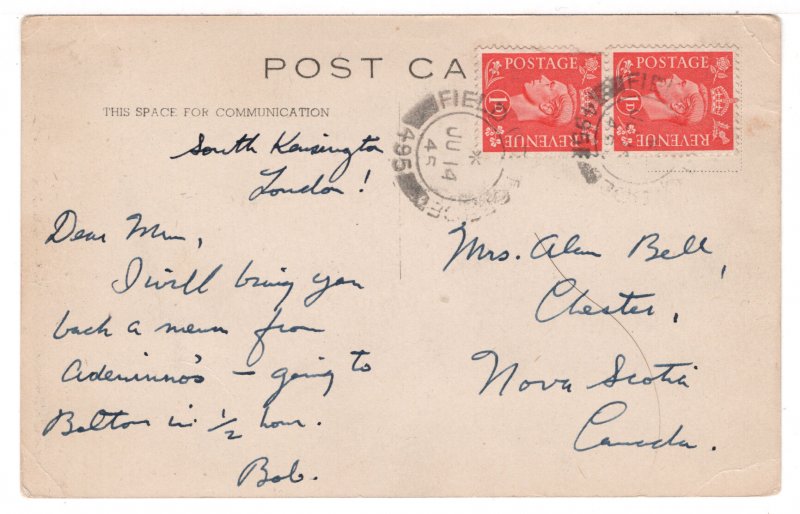 POST CA
THIS SPACE FOR COMMUNICATION
South Kensington
London!
Dear Mum,
I will bring you
back a menu from
– going to
Bolton in ½ hour.
Bob.
Mrs. Alan Bell,
Chester,
Nova Scotia
Canada.
POSTAGE
1D
REVENUE
POSTAGE
1D
REVENUE
FIEL
JU 14
45
495
FIEL
495